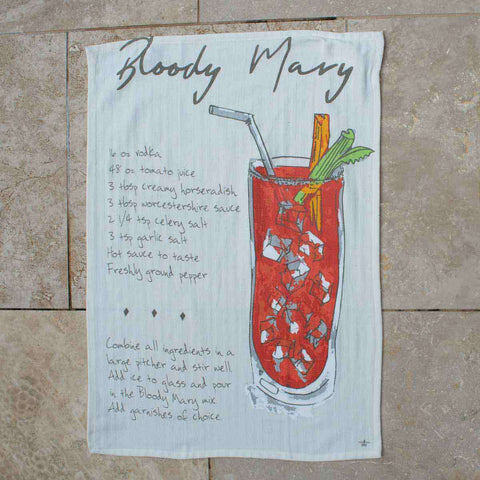 Bloody Mary
16 oz vodka
48 oz tomato juice
3 tbsp creamy horseradish
3 tbsp worcestershire sauce
2 1/4 tsp celery salt
3 tsp garlic salt
Hot sauce to taste
Freshly ground pepper
Combine all ingredients in a
large pitcher and stir well.
Add ice to glass and pour
in the Bloody Mary mix.
Add garnishes of choice